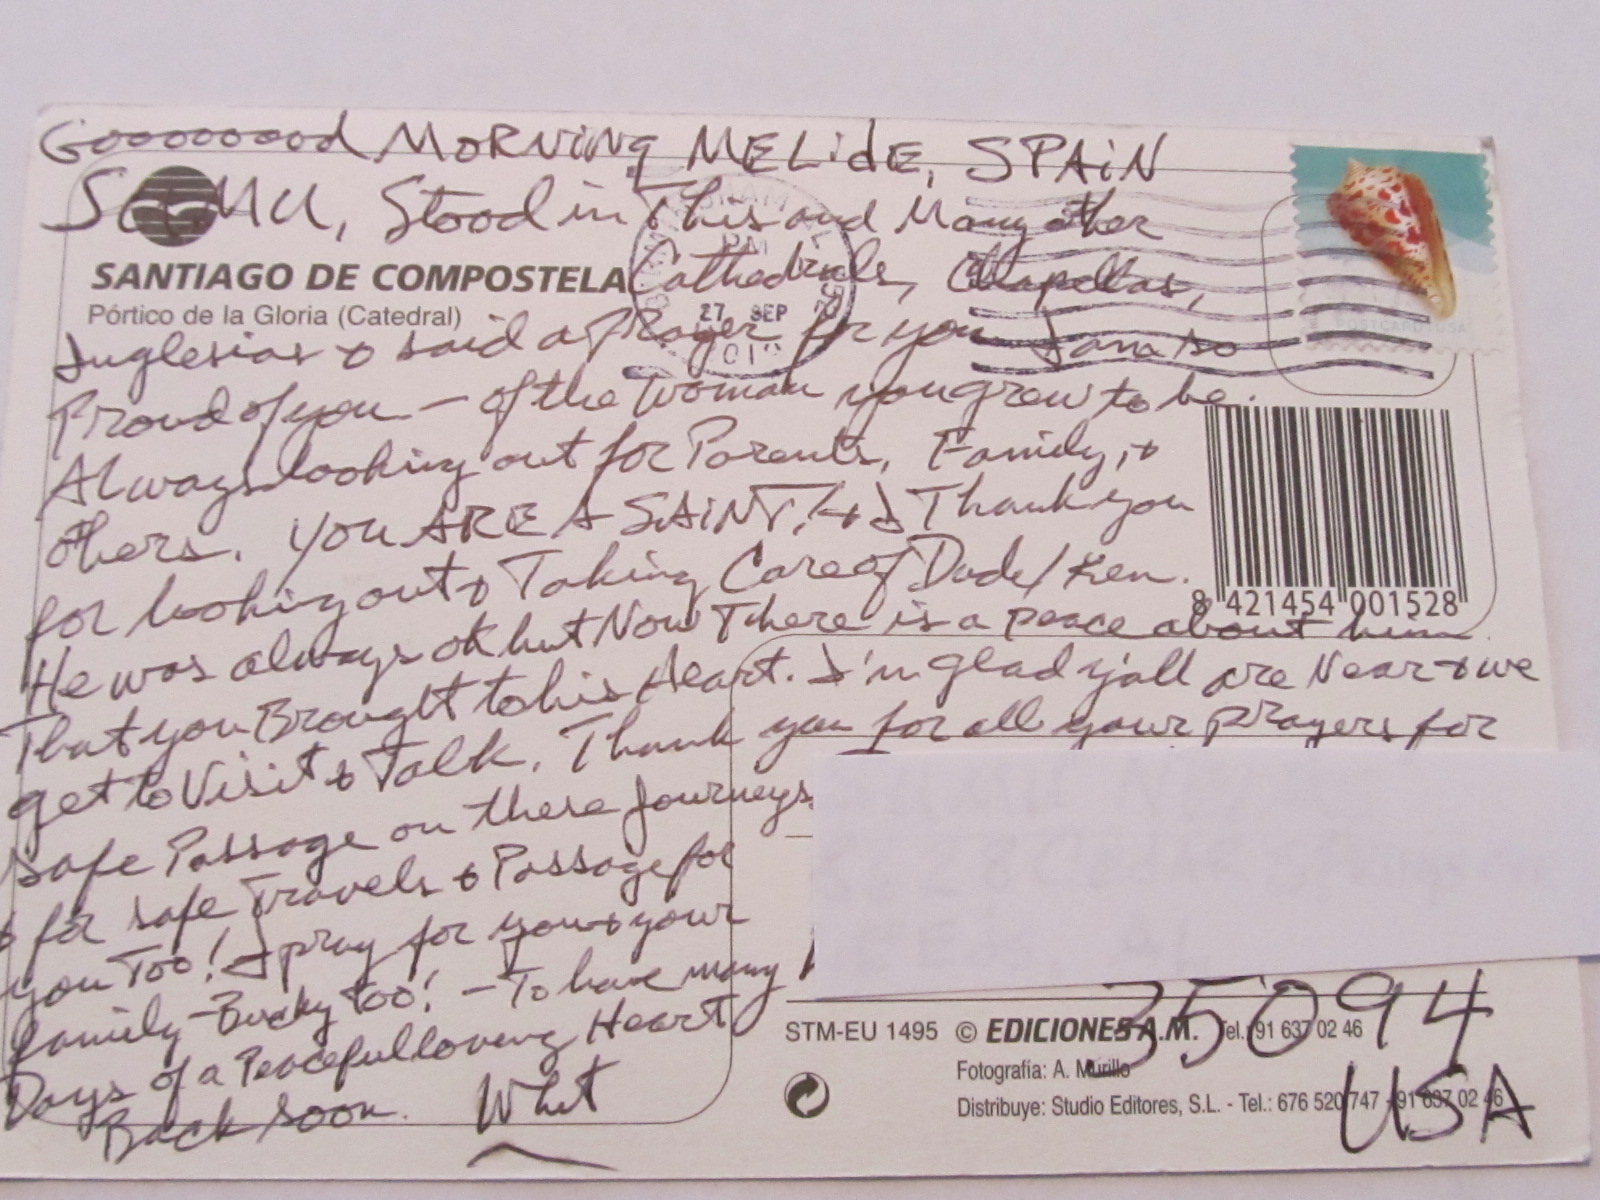 Goooooood MORNiNg MELidE, SPAiN
SAMU, Stood in This and Many other
SANTIAGO DE COMPOSTELA
Cathedrals, Chapellas,
Pórtico de la Gloria (Catedral)
27 SEP
PM
POSTCARD USA
Inglesias & said a Prayer for you I am so
Proud of you – of the Woman you grew to be.
Always looking out for Parents, Family, &
others. YOU ARE A SAiNT! & I Thank you
for looking out & Taking Care of Dude/Ken.
8 421454 001528
He was always ok but Now There is a peace about him
That you Brought to his Heart. I'm glad y'all are Near & we
get to Visit & Talk. Thank you for all your prayers for
safe Passage on these Journeys
& for safe Travels & Passage for
you Too! I pray for you & your
family – Bucky too! – To have many
Days of a Peaceful loving Heart
Back soon. Whit
35094
USA
STM-EU 1495 © EDICIONES A.M. Tel.: 91 637 02 46
Fotografía: A. Murillo
Distribuye: Studio Editores, S.L. - Tel.: 676 520 747 - 91 637 02 46